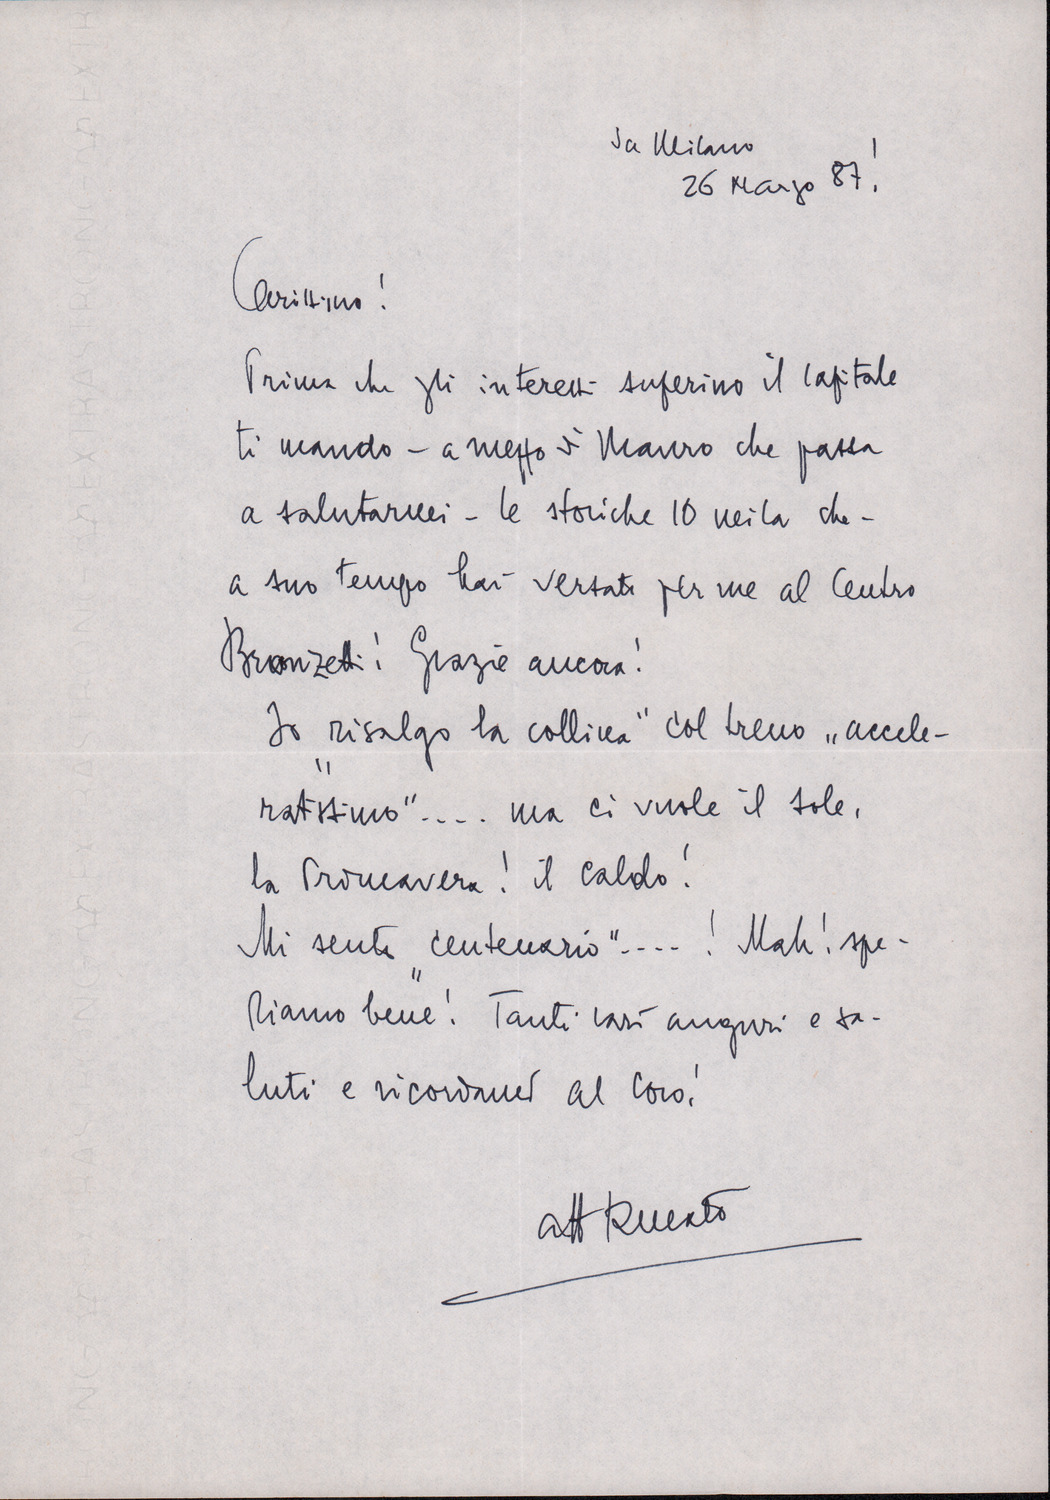 da Milano
26 Marzo 87!
Carissimo!
Prima che gli interessi superino il capitale
ti mando – a mezzo di Mauro che passa
a salutarmi – le storiche 10 mila che –
a suo tempo hai versato per me al Centro
Bronzetti! Grazie ancora!
Io „risalgo la collina" col treno „accele-
ratissimo".... ma ci vuole il sole,
la Primavera! il caldo!
Mi sento „centenario".... ! Mah! spe-
riamo bene! Tanti cari auguri e sa-
luti e ricordami al Coro!
aff Renato